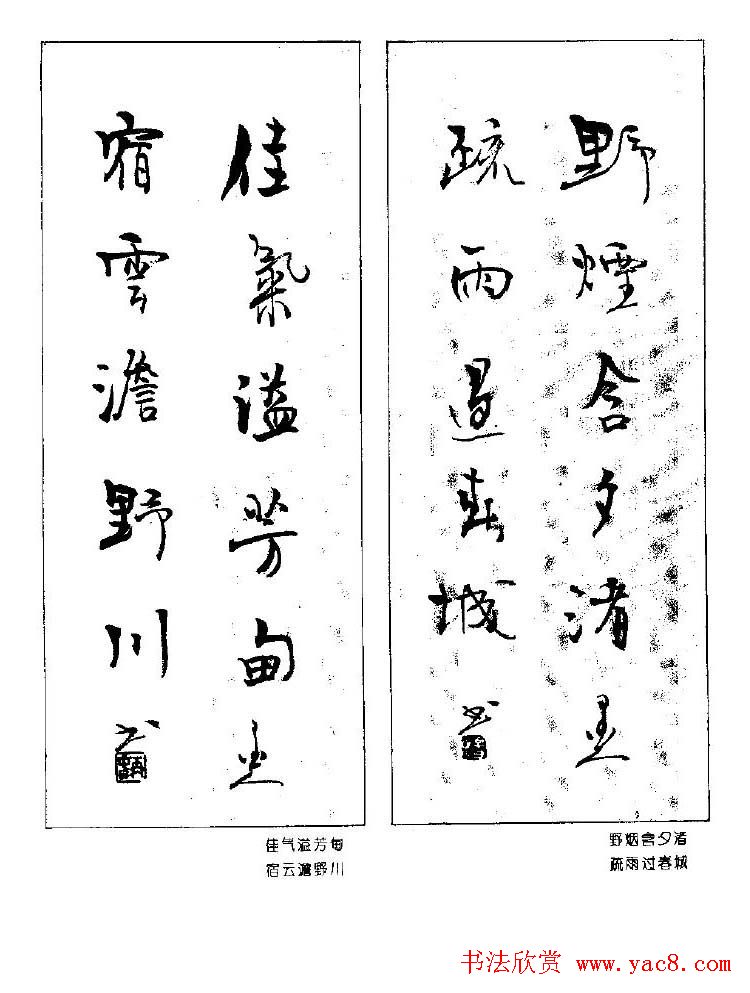 野煙含夕渚
疏雨過春城
野烟含夕渚
疏雨过春城
佳氣溢芳甸
宿雲澹野川
佳气溢芳甸
宿云澹野川
书法欣赏 www.yac8.com